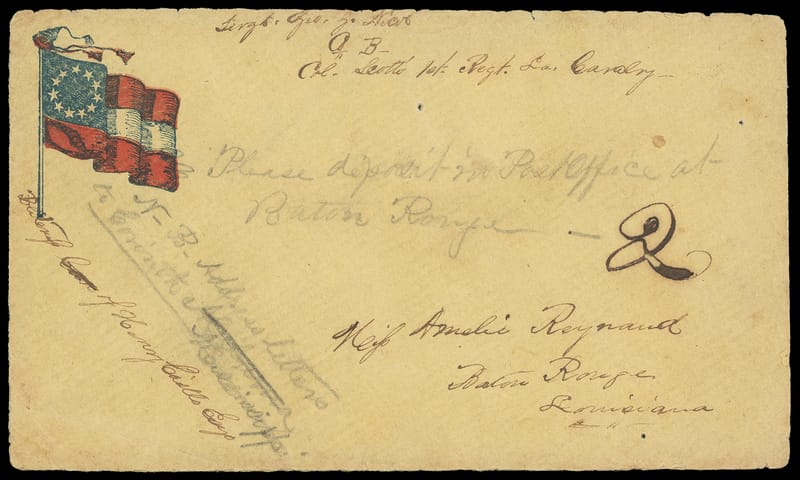 Sergt. Geo. Z.
Co. B
Col. Scott's 1st. Regt. La. Cavalry
Please deposit in Post Office at
Baton Rouge —
2
N. B. Address letters
to Corinth
Mississippi.
of Henry Esqr
Miss Amelie Reynaud
Baton Rouge
Louisiana